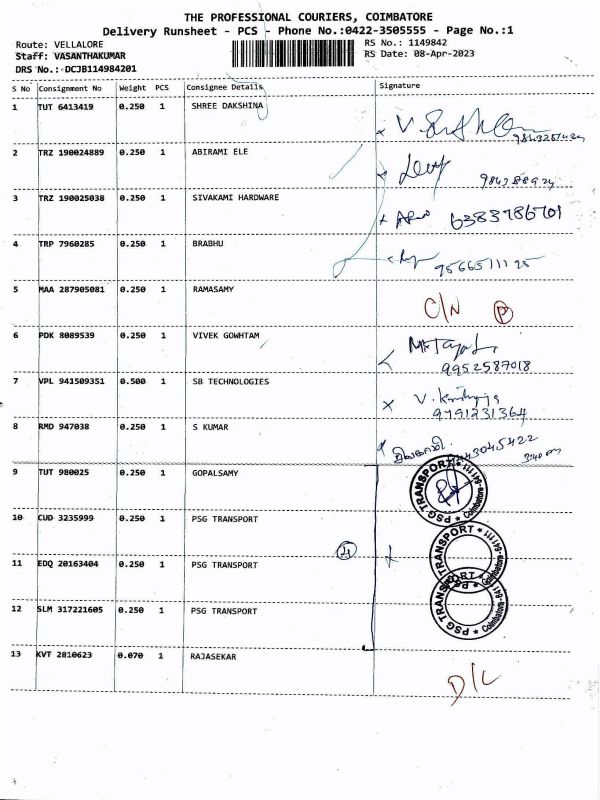 THE PROFESSIONAL COURIERS, COIMBATORE
Delivery Runsheet - PCS - Phone No.:0422-3505555 - Page No.:1
Route: VELLALORE
RS No.: 1149842
Staff: VASANTHAKUMAR
RS Date: 08-Apr-2023
DRS No.:-DCJB114984201
S No Consignment No Weight PCS Consignee Details Signature
1 TUT 6413419 0.250 1 SHREE DAKSHINA
2 TRZ 190024889 0.250 1 ABIRAMI ELE
3 TRZ 190025038 0.250 1 SIVAKAMI HARDWARE 6383786701
4 TRP 7960285 0.250 1 BRABHU
5 MAA 287905081 0.250 1 RAMASAMY C/N P
6 PDK 8089539 0.250 1 VIVEK GOWHTAM
9952587018
7 VPL 941509351 0.500 1 SB TECHNOLOGIES
9791231364
8 RMD 947038 0.250 1 S KUMAR
9 TUT 980025 0.250 1 GOPALSAMY
PSG TRANSPORT ★ Coimbatore-641111
10 CUD 3235999 0.250 1 PSG TRANSPORT
PSG TRANSPORT ★ Coimbatore-641111
11 EDQ 20163404 0.250 1 PSG TRANSPORT
4
12 SLM 317221605 0.250 1 PSG TRANSPORT
PSG TRANSPORT ★ Coimbatore-641111
13 KVT 2810623 0.070 1 RAJASEKAR
D/L